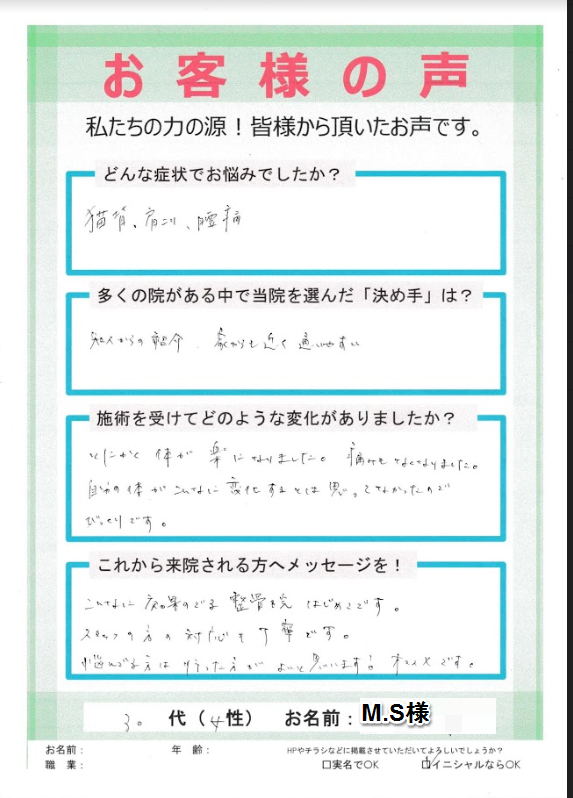 お客様の声
私たちの力の源！皆様から頂いたお声です。
どんな症状でお悩みでしたか？
猫背、肩こり、腰痛
多くの院がある中で当院を選んだ「決め手」は？
知人からの紹介、家からも近く通いやすい
施術を受けてどのような変化がありましたか？
とにかく体が楽になりました。痛みもなくなりました。
自分の体がこんなに変化するとは思ってなかったので
びっくりです。
これから来院される方へメッセージを！
こんなに効果のでる整骨院はじめてです。
スタッフの方の対応も丁寧です。
悩んでる方は行った方がよいと思います！オススメです。
30代（女性） お名前：M.S様
お名前： 年 齢： HPやチラシなどに掲載させていただいてよろしいでしょうか？
職 業： 口実名でOK 口イニシャルならOK